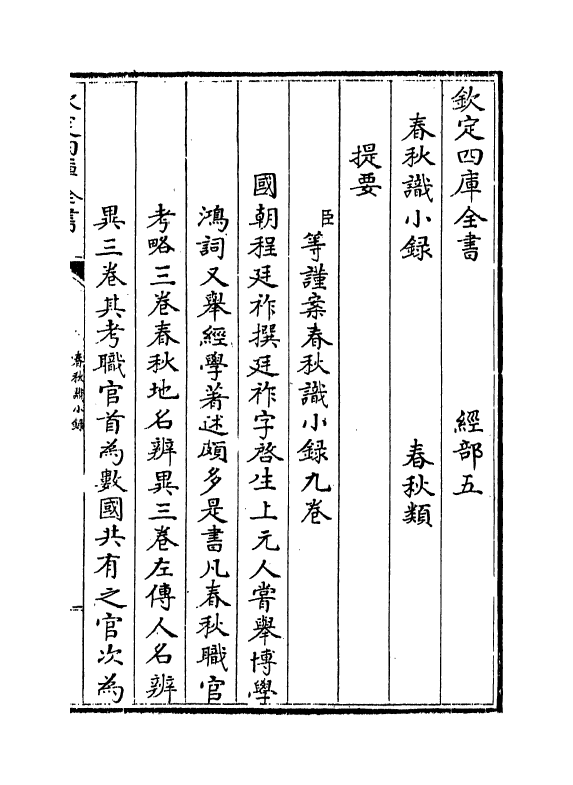 欽定四庫全書　經部五
春秋識小録　春秋類
提要
臣等謹案春秋識小録九卷
國朝程廷祚撰廷祚字啓生上元人嘗舉博學
鴻詞又舉經學著述頗多是書凡春秋職官
考略三卷春秋地名辨異三卷左傳人名辨
異三卷其考職官首為數國共有之官次為
欽定四庫全書
春秋識小録